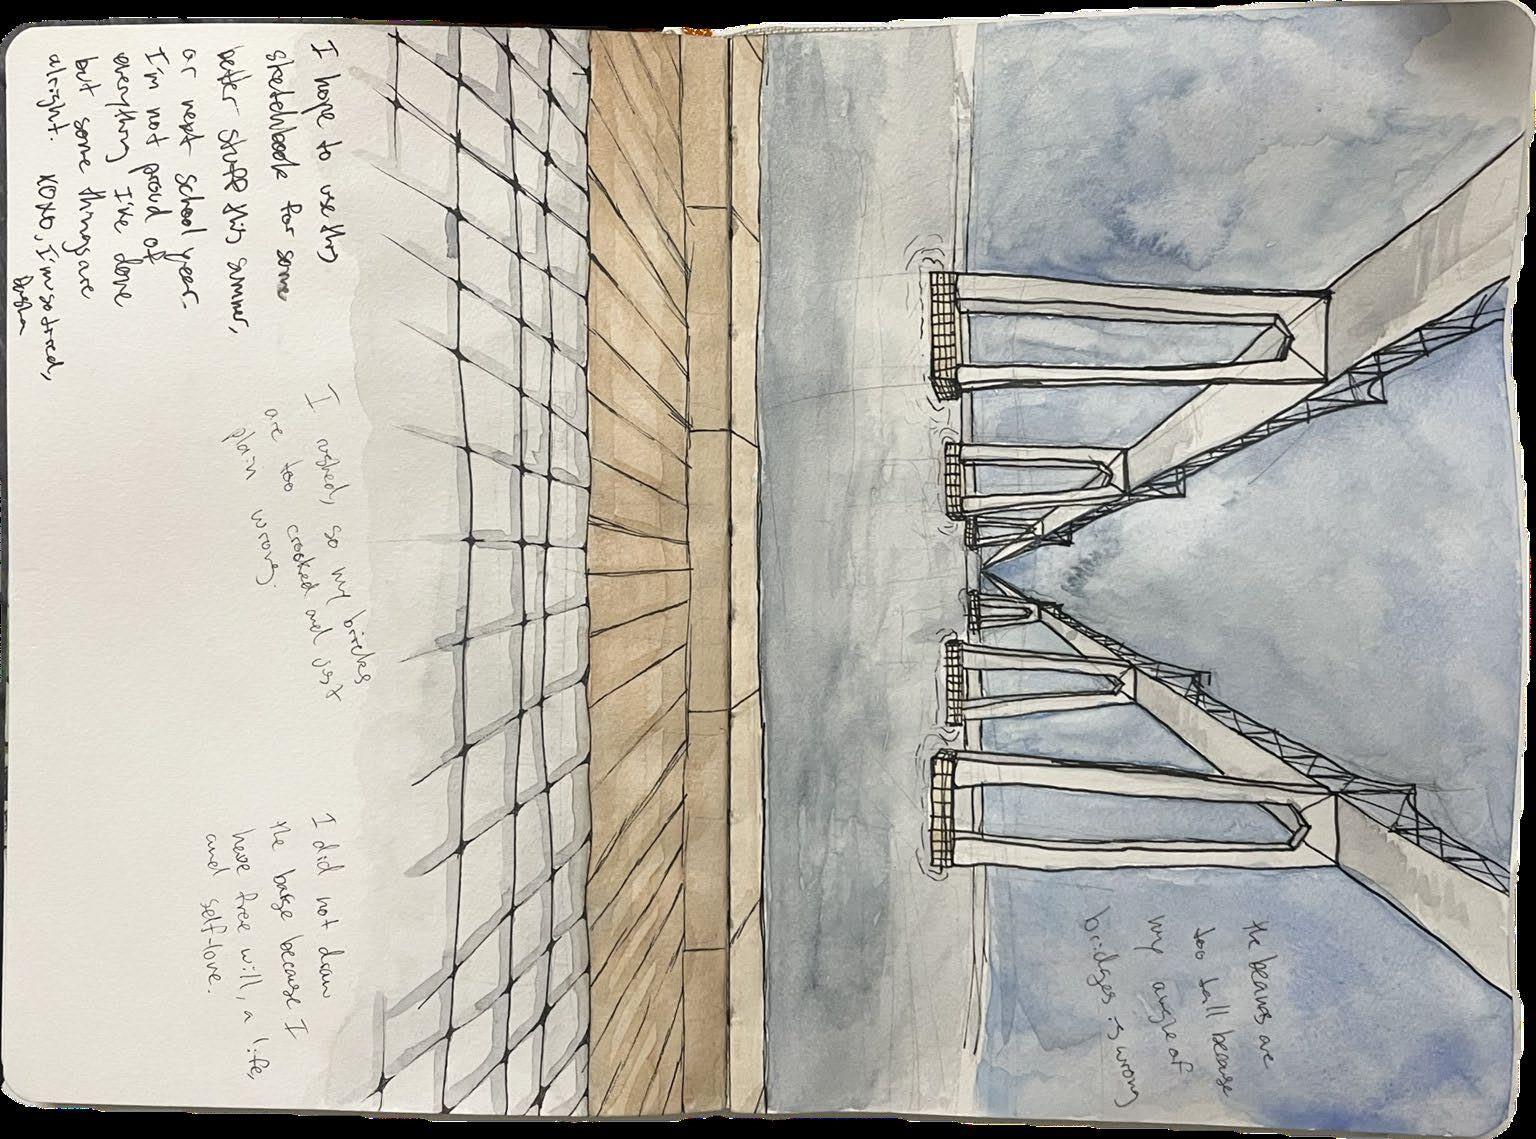 the beams are
too tall because
my angle of
bridges is wrong
I hope to use this
sketchbook for some
better stuff this summer,
or next school year.
I'm not proud of
everything I've done
but some things are
alright. xoxo, I'm so tired,
I rushed, so my bricks
are too crooked and just
plain wrong.
I did not draw
the barge because I
have free will, a life,
and self-love.